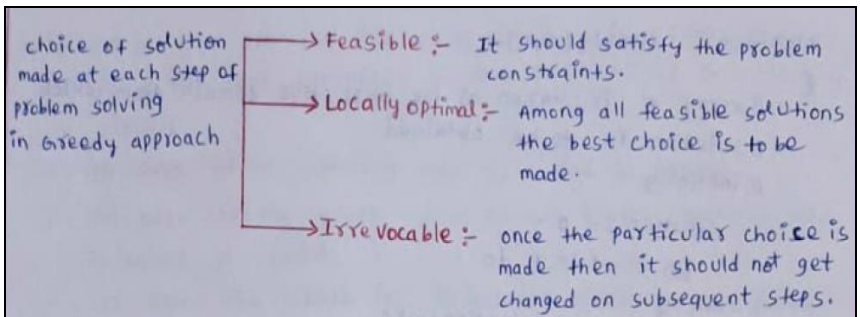 choice of solution
made at each step of
problem solving
in Greedy approach
→ Feasible :- It should satisfy the problem
constraints.
→ Locally optimal :- Among all feasible solutions
the best choice is to be
made.
→ Irrevocable :- once the particular choice is
made then it should not get
changed on subsequent steps.